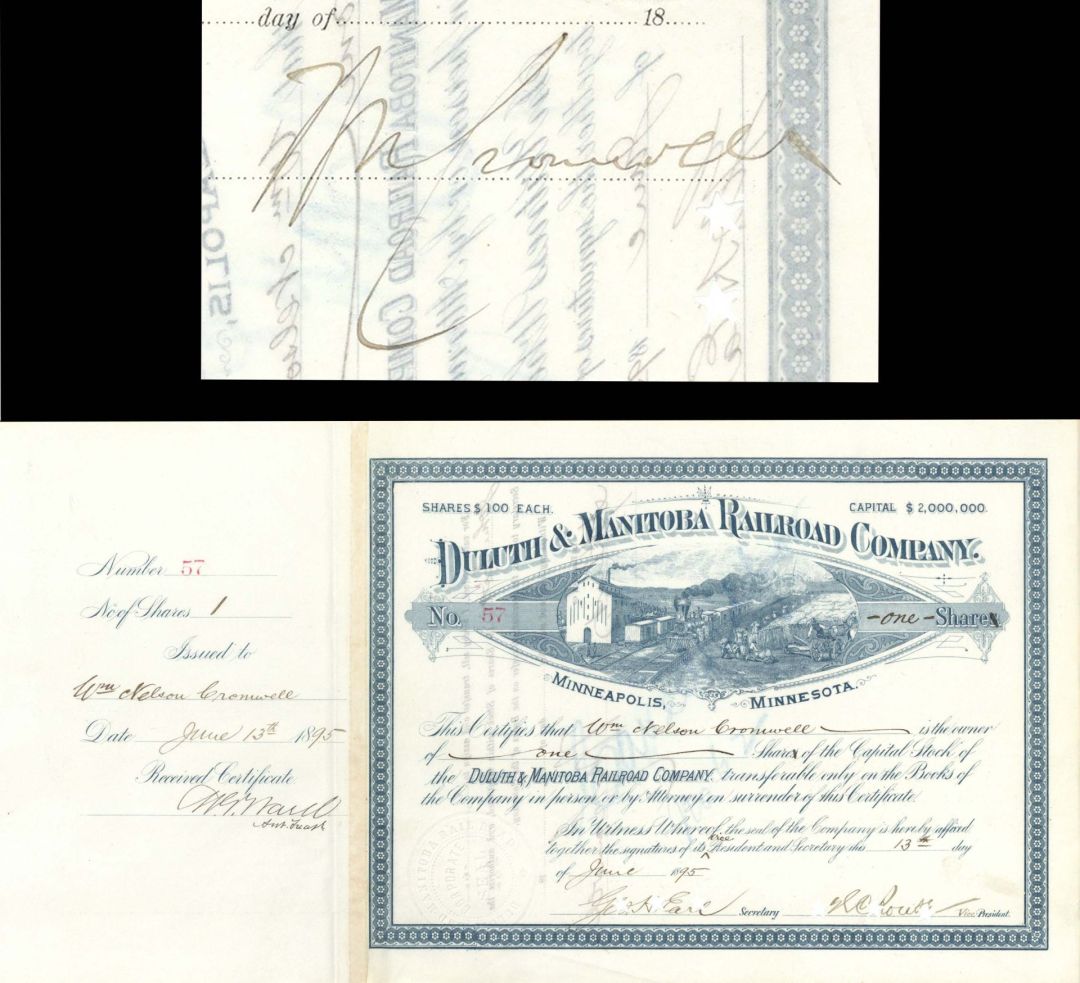 day of 18
Wm Cromwell
Number 57
No of Shares 1
Issued to
Wm Nelson Cromwell
Date June 13th 1895
Received Certificate
Asst. Treas
SHARES $100 EACH.
CAPITAL $2,000,000.
DULUTH & MANITOBA RAILROAD COMPANY.
No. 57
-one- Share
MINNEAPOLIS, MINNESOTA.
This Certifies that Wm Nelson Cromwell is the owner
of one Share of the Capital Stock of
the DULUTH & MANITOBA RAILROAD COMPANY. transferable only on the Books of
the Company in person or by Attorney on surrender of this Certificate.
In Witness Whereof, the seal of the Company is hereby affixed
together the signatures of its Vice President and Secretary this 13th day
of June 1895
Geo. H. Earl Secretary Vice President.